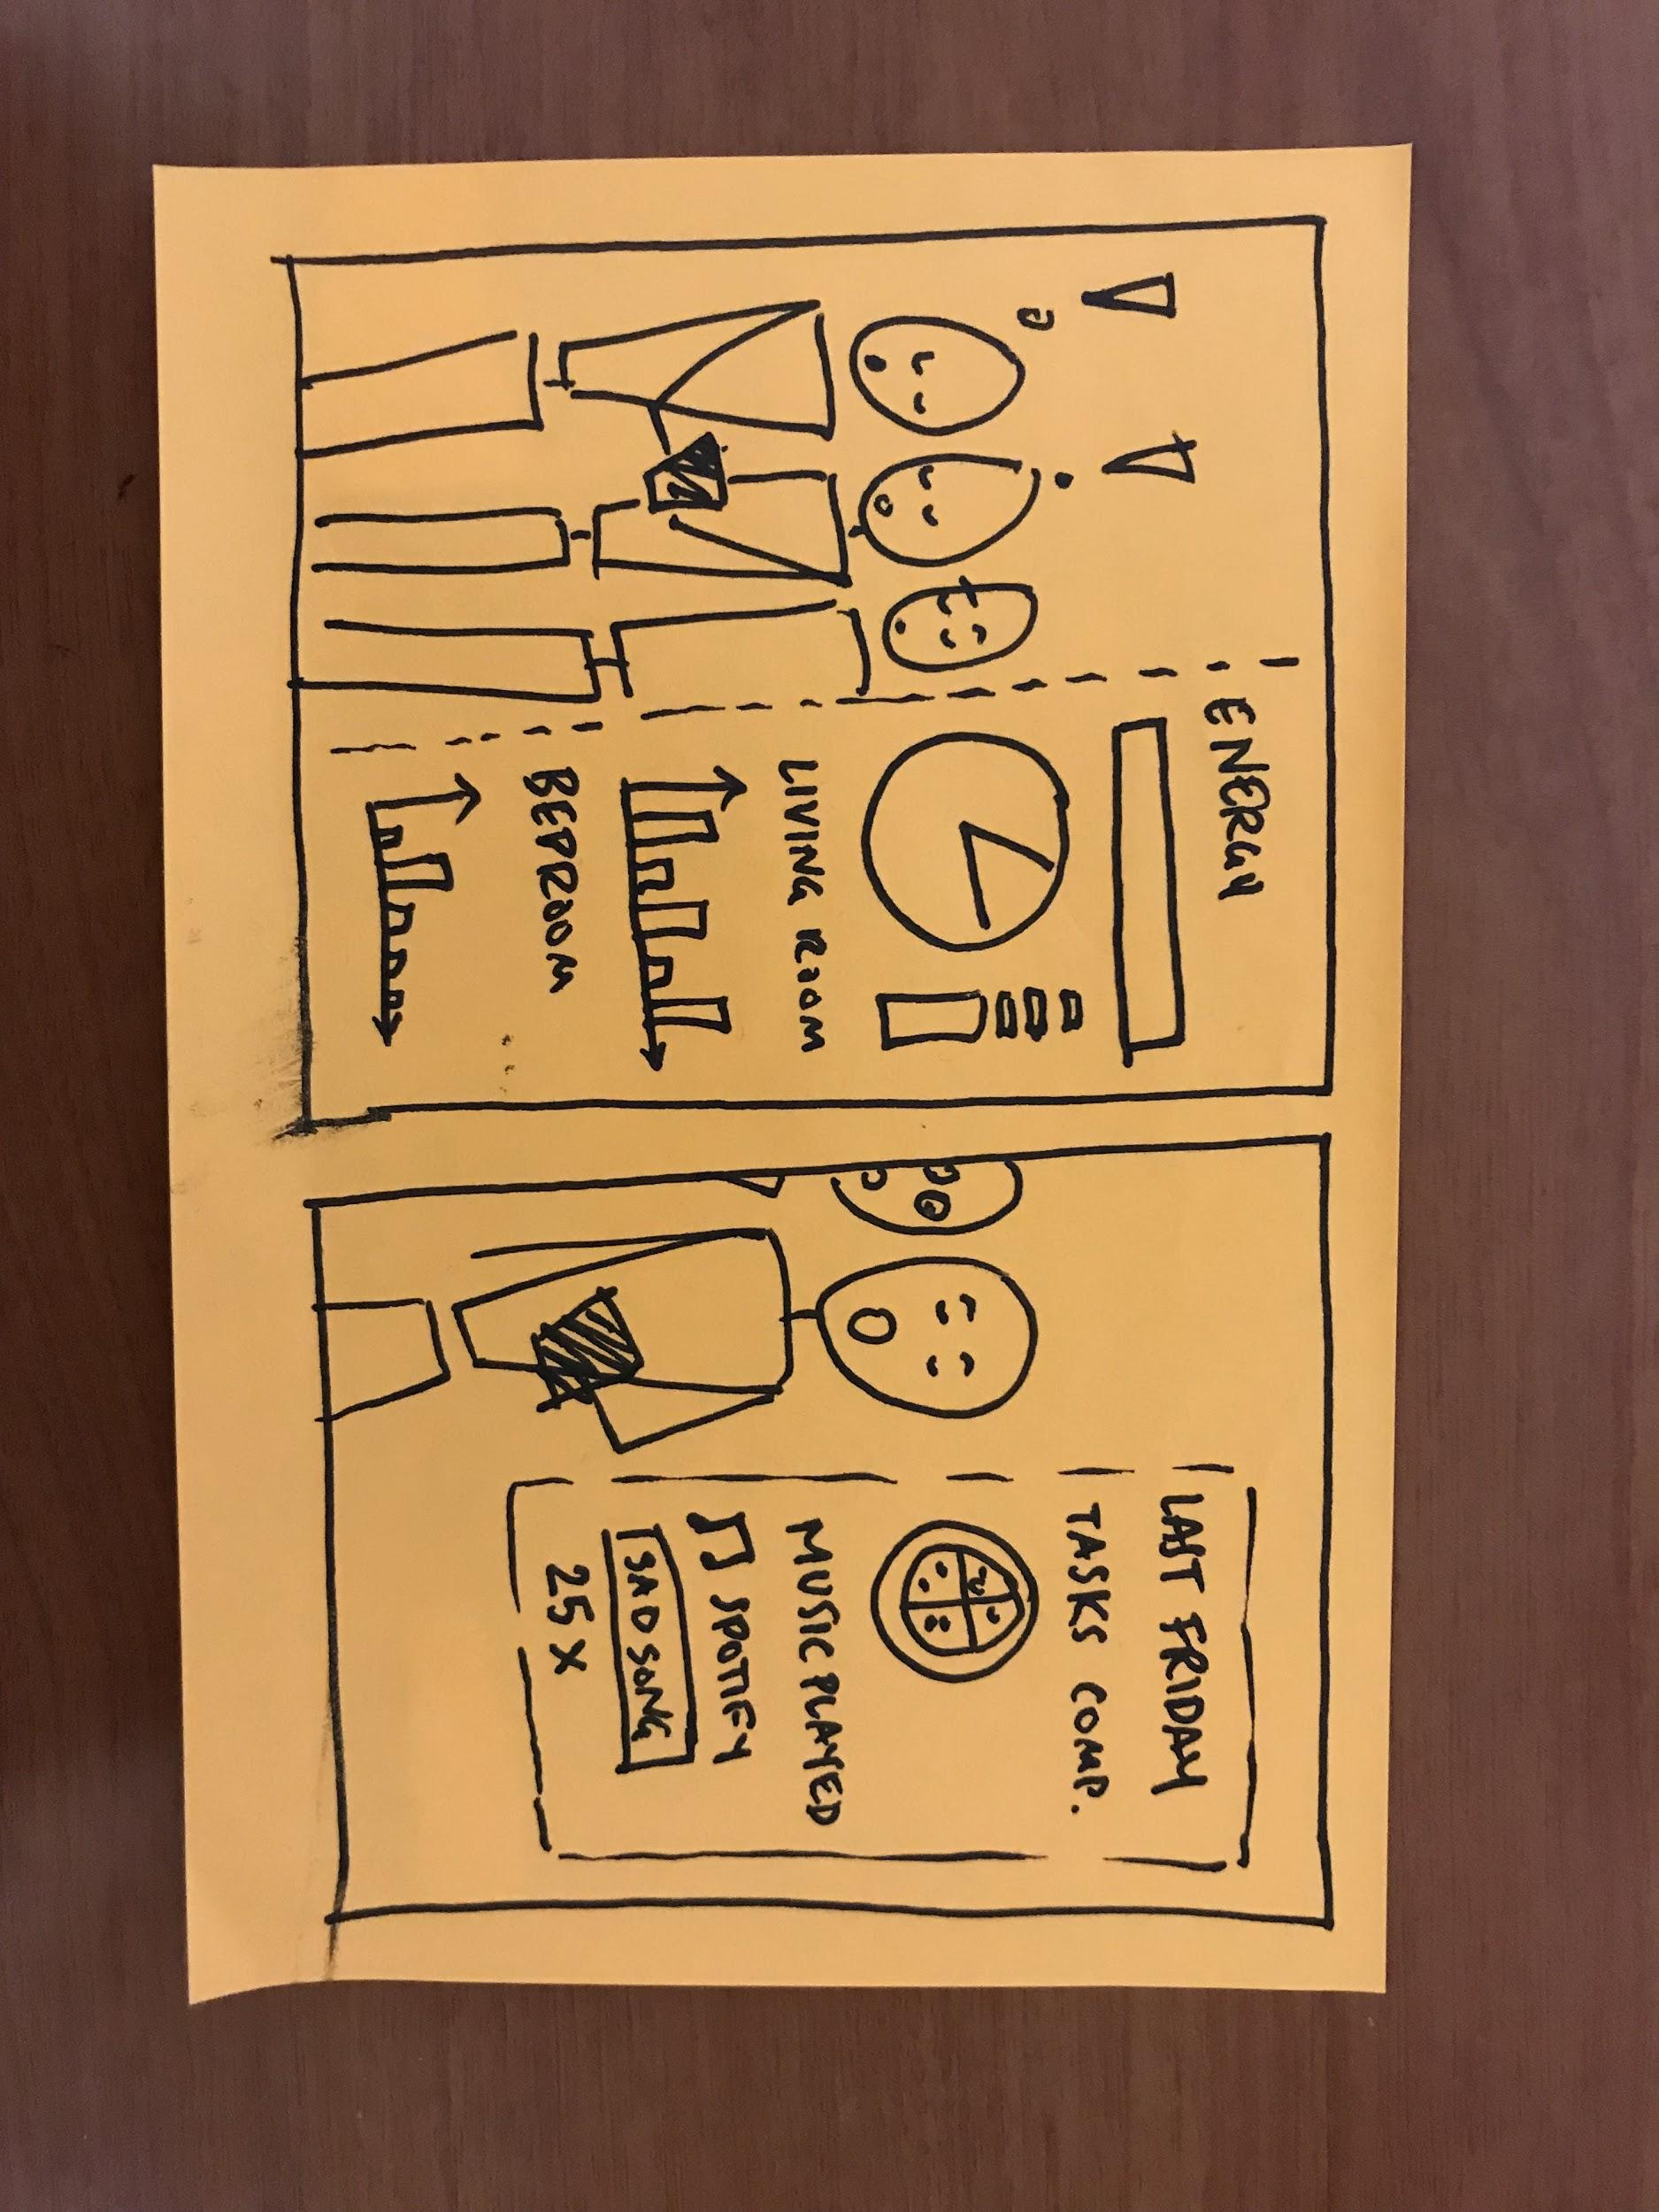 ENERGY
LIVING ROOM
BEDROOM
LAST FRIDAY
TASKS COMP.
MUSIC PLAYED
SPOTIFY
SAD SONG
25 X